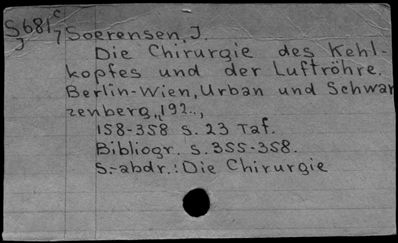 S681c7 Soerensen, J.
J
Die Chirurgie des Kehl-
kopfes und der Luftröhre.
Berlin-Wien, Urban und Schwar
zenberg, 192..,
158-358 s. 23 Taf.
Bibliogr. s. 355-358.
s.-abdr.: Die Chirurgie